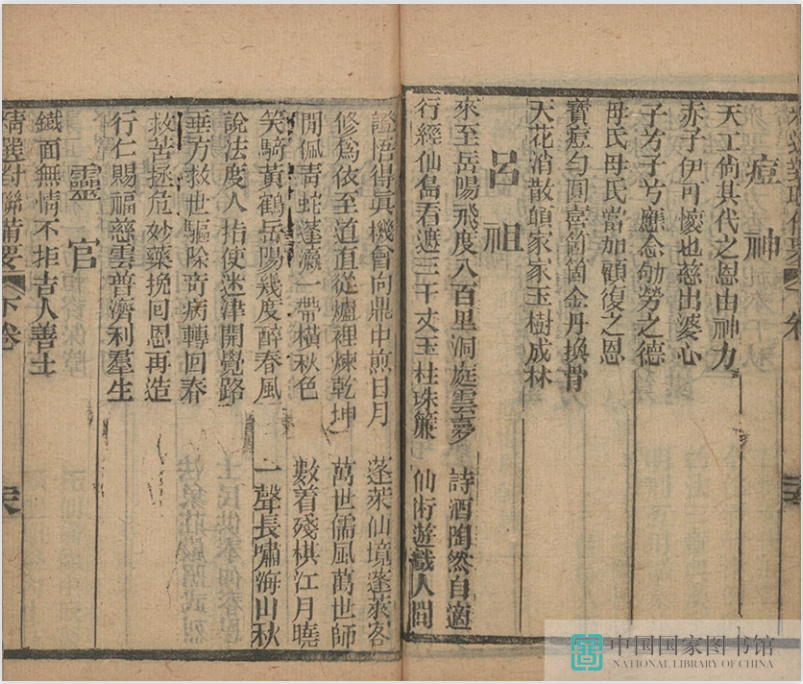 痘神
天工倘其代之恩由神力
赤子伊可懷也慈出婆心
子兮子兮應念劬勞之德
母氏母氏當加顧復之恩
寶痘勻圓喜箇箇金丹換骨
天花消散頌家家玉樹成林
呂祖
來至岳陽飛度八百里洞庭雲夢 詩酒陶然自適
行經仙島看遊三千丈玉柱珠簾 仙術遊戲人間
證悟得真機會向鼎中煎日月 蓬萊仙境蓬萊客
修為依至道直從爐裡煉乾坤 萬世儒風萬世師
閒佩青蛇蓬瀛一帶橫秋色 數着殘棋江月曉
笑騎黃鶴岳陽幾度醉春風 一聲長嘯海山秋
說法度人指使迷津開覺路
垂方救世驅除奇病轉回春
救苦拯危妙藥挽回恩再造
行仁賜福慈雲普濟利羣生
靈官
鐵面無情不拒吉人善士
精選對聯備要 下卷
中国国家图书馆
NATIONAL LIBRARY OF CHINA